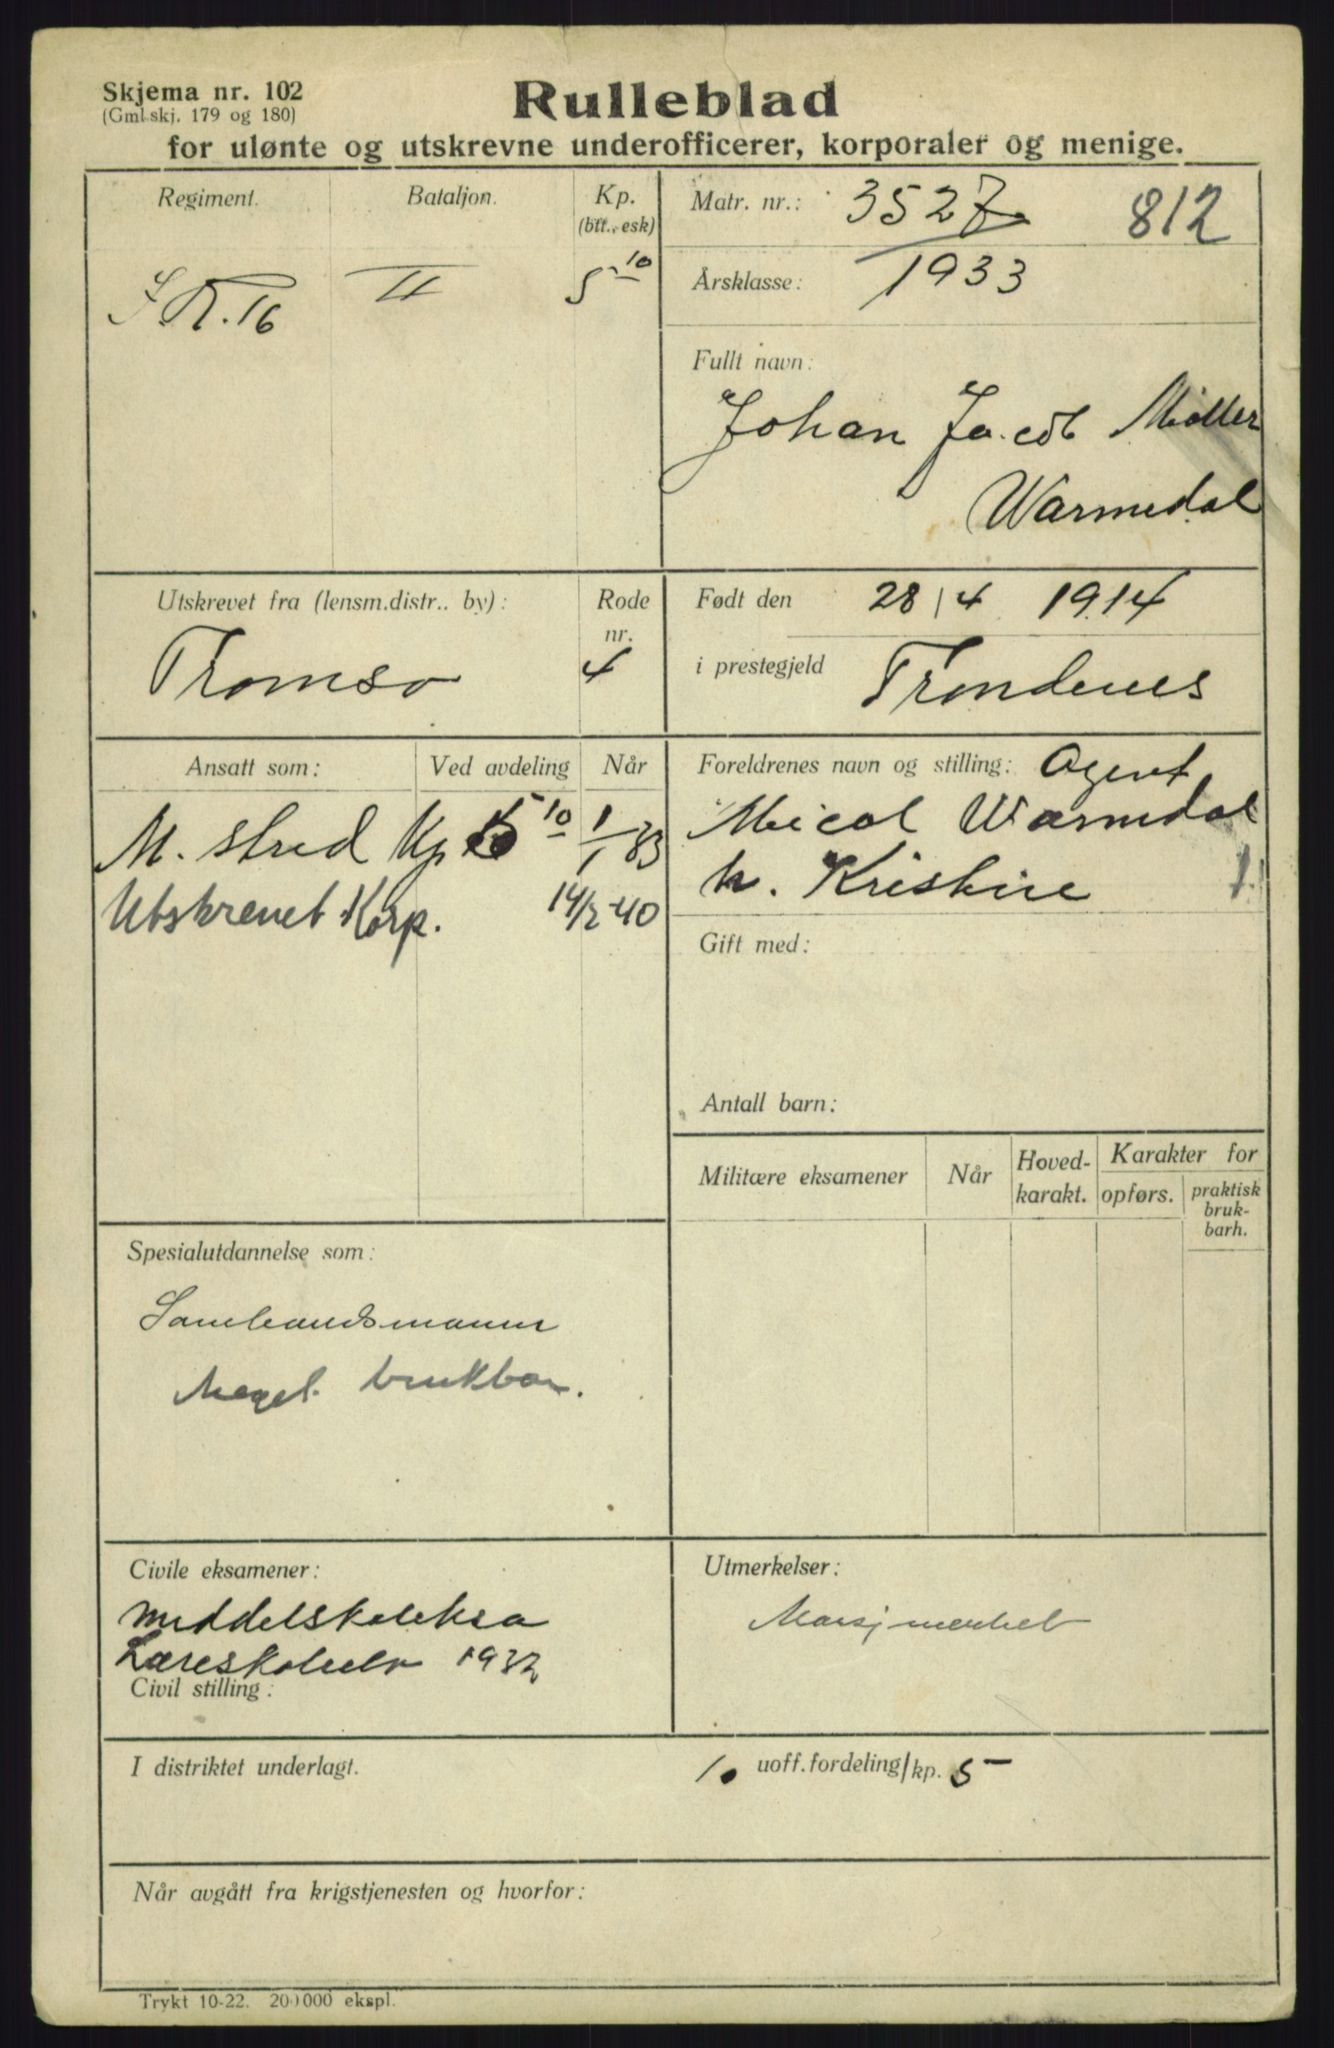 Skjema nr. 102
(Gml. skj. 179 og 180)
Rulleblad
for ulønte og utskrevne underofficerer, korporaler og menige.
Regiment.
Bataljon.
Kp.
(btt., esk)
I.R.16
II
5 10
Matr. nr.: 3527 812
Årsklasse: 1933
Fullt navn:
Johan Jacob Møller
Warmedal
Utskrevet fra (lensm.distr.. by):
Rode
nr.
Tromsø
4
Født den 28/4 1914
i prestegjeld Trondenes
Ansatt som:
Ved avdeling
Når
M. stred Kp 5 10 1/1 33
Utskrevet Korp. 14/2 40
Foreldrenes navn og stilling: Agent
Micol Warmedal
h. Kristine
Gift med:
Antall barn:
Militære eksamener
Når
Hoved-
karakt.
Karakter for
opførs.
praktisk
bruk-
barh.
Spesialutdannelse som:
Sambandsmann
Meget brukbar.
Civile eksamener:
Middelskoleksa
1932
Civil stilling:
Utmerkelser:
Marsjmerket
I distriktet underlagt.
1. uoff. fordeling/kp. 5
Når avgått fra krigstjenesten og hvorfor:
Trykt 10-22. 200000 ekspl.